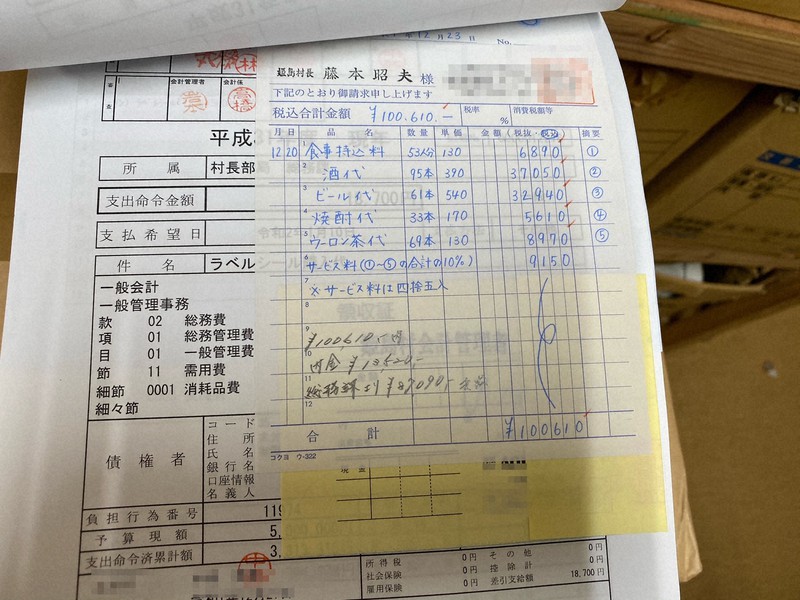 12月23日
No.
姫島村長 藤本昭夫 様
下記のとおり御請求申し上げます
税込合計金額 ¥100,610.- 税率 % 消費税額等
月 日 品名 数量 単価 金額 (税抜・税込) 摘要
12 20 1 食事持込料 53人分 130 6890 ①
2 酒代 95本 390 37050 ②
3 ビール代 61本 540 32940 ③
4 焼酎代 33本 170 5610 ④
5 ウーロン茶代 69本 130 8970 ⑤
6 サービス料(①~⑤の合計の10%) 9150
7 ※サービス料は四捨五入
8
9 ¥100610.-内
10 内金 ¥13,520.-
11 総務課より ¥87,090.-
12
合計 ¥100610
コクヨ ウ-322
会計管理者 会計係
平成
所属 村長部
支出命令金額
支払希望日
件名 ラベル
一般会計
一般管理事務
款 02 総務費
項 01 総務管理費
目 01 一般管理費
節 11 需用費
細節 0001 消耗品費
細々節
債権者
コード
住所
氏名
銀行名
口座情報
名義人
負担行為番号
予算現額 5,
支出命令済累計額 3,
所得税 0円 その他 0円
社会保険 0円 控除計 0円
雇用保険 0円 差引支給額 18,700円